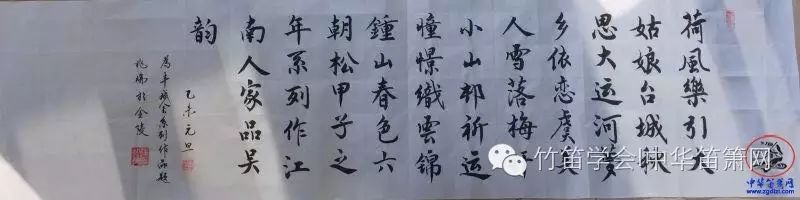 荷風樂引大
姑娘台城秋
思大运河夢
乡依恋虞美
人雪落梅
小山邨祈运
憧憬織雲錦
鍾山春色六
朝松甲子之
年系列作江
南人家品吴
韵
乙未元旦
為平系列作品題
於金陵
竹笛学会|中华笛箫网
中华笛箫网
www.zgdizi.com